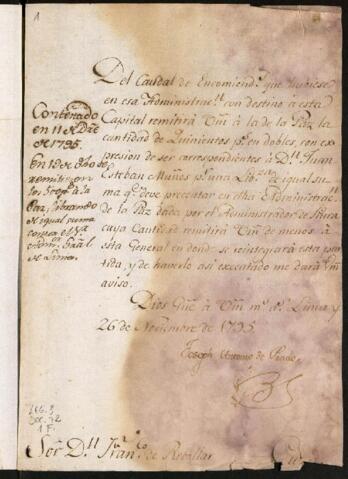 1
Del Caudal de Encomiend.s que hubiese
en esa Administrac.n con destino á esta
Capital remitirá Vm á la de la Paz la
cantidad de Quinientos p.s en dobles, con ex
presion de ser correspondientes á D.n Juan
Esteban Muños p.r una Lib.za de igual su
ma q.e deve precentar en dha Administrac.n
de la Paz dada por el Administrador de
cuya Cantidad remitirá Vm. de menos á
esta General en donde se reintegrará esta par
tida, y de haverlo asi executado me dará Vm
aviso.
Dios gue. á Vm m.s a.s Lima y
26 de Noviembre de 1795
Joseph Antonio de Pando
Contextado
en 11 de Dize
de 1795.
En 18 de
remiti
los 500 p.s á la
Paz, librando
de igual suma
contra el
Adm.r Gral
de Lima.
Leg. 3
Doc. 72
1 F.
Sor D.n Fran.co de Reballar